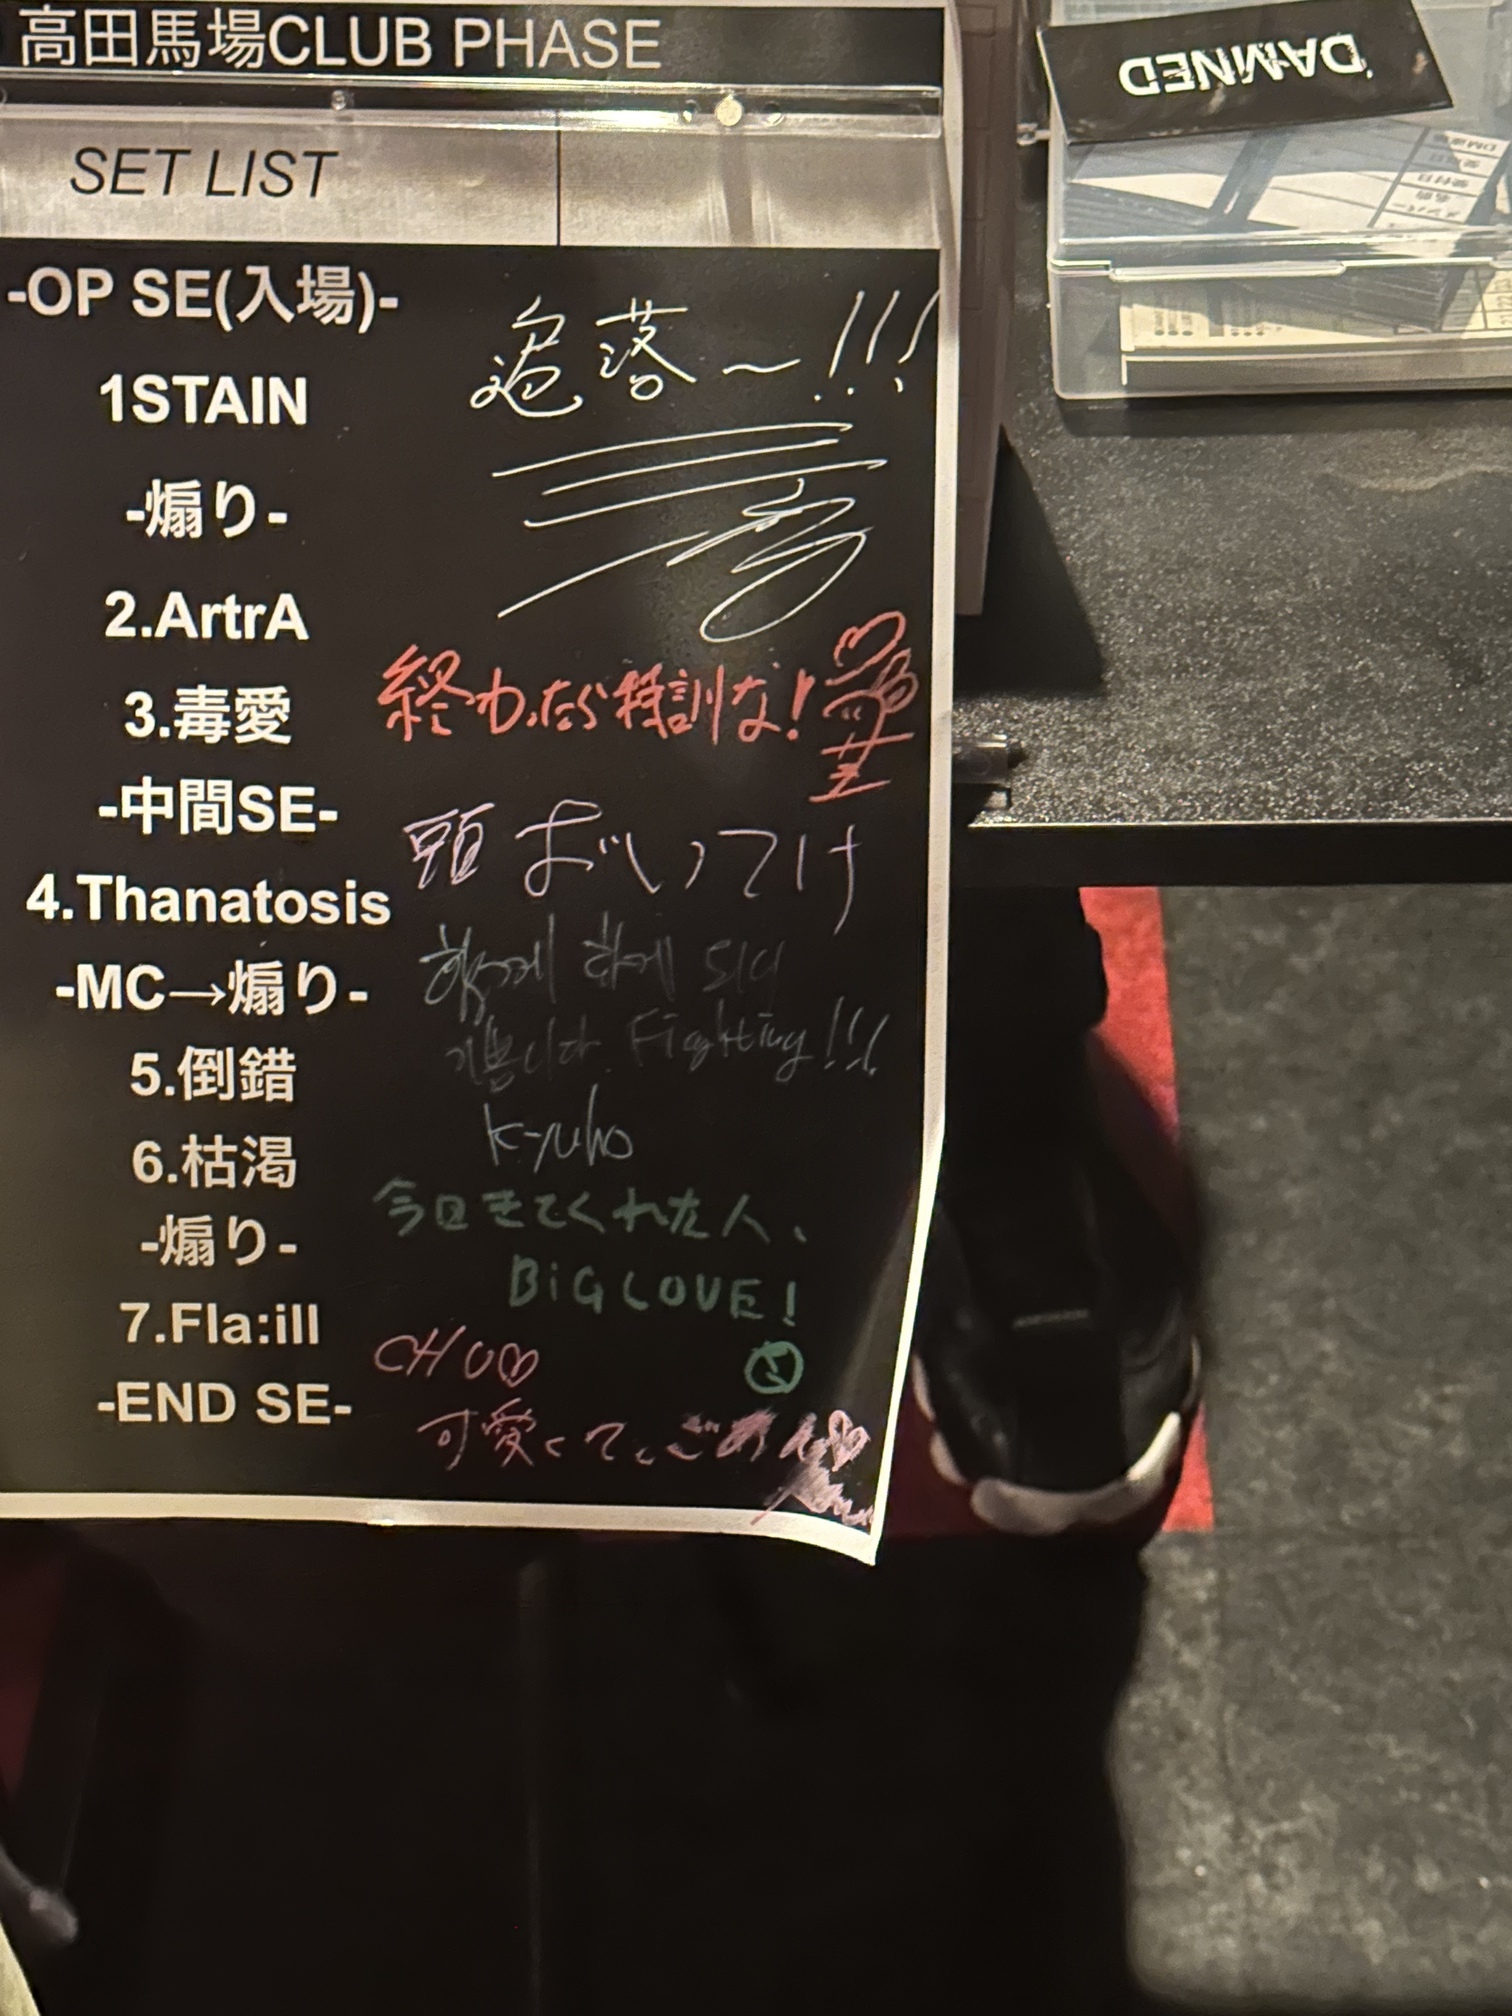 高田馬場CLUB PHASE
DAMNED
SET LIST
-OP SE(入場)-
落～!!!
1STAIN
-煽り-
2.ArtrA
3.毒愛
終わったら特訓な!
-中間SE-
頭おいてけ
4.Thanatosis
함께 하게 되어
-MC→煽り-
기쁩니다. Fighting!!!
5.倒錯
Kyuho
6.枯渇
今日きてくれた人、
-煽り-
BiG LOVE!
7.Fla:ill
CHU♡
-END SE-
可愛くて、ごめん♡